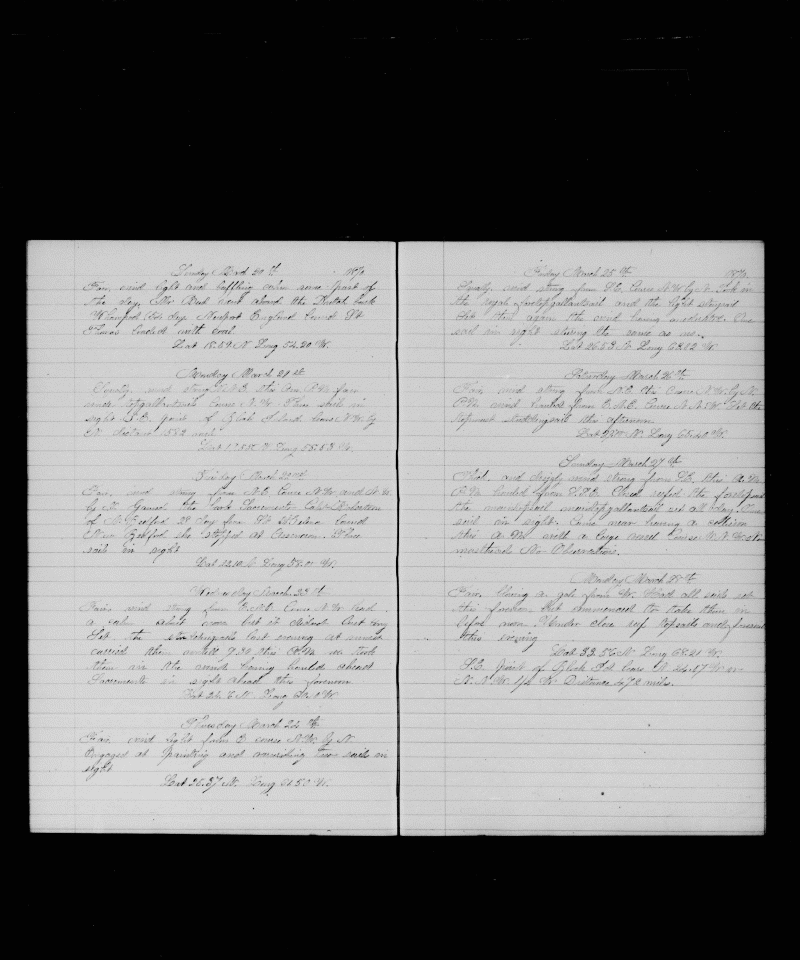 Sunday March 20th 1870
Fair, wind light and baffling calm some part of
the day. Mr Bud went aboard the Dutch bark
days Newport England bound St
Thomas loaded with coal.
Lat 18.59 N. Long 54.20 W.
Monday March 21st
wind strong N.E. this A.M. fair
since topgallantsail Course N.W. Three sail in
sight S.E. point of Block Island bears N.W. by
N. distance 1582 miles
Long 58.53 W.
March 22nd
Fair, wind strong from N.E. Course N.W. and N.W.
by N. Gamed the bark Sacramento Capt
of N. Bedford 28 days from St Helena bound
New Bedford she stopped at Ascension. Three
sail in sight
Lat 22.10 N Long W.
Wednesday March 23rd
Fair wind strong from E.N.E. Course N.W. had
a calm last
Set the studdingsails last evening at sunset
carried them until 9.30 this A.M. when took
them in the wind having hauled ahead
Sacramento in sight ahead this forenoon.
Lat 24.6 N. Long W.
Thursday March 24th
Fair, wind light from E course N.W. by N.
Engaged at painting and varnishing two sails in
sight
Lat 25.37 N. Long 61.50 W.
Friday March 25th 1870.
wind strong from S.E. Course N.W. by N. Took in
the royal foretopgallantsail and the light staysail
Set them again the wind having moderated. One
sail in sight steering the same as us.
Lat 26.53 N. Long 63.22 W.
Saturday March 26th
Fair, wind strong from N.E. Course N.W. by N.
P.M. wind hauled from E.N.E. Course N.N.W. Set the
topmast studdingsail this afternoon
Lat N. Long 65.40 W.
Sunday March 27th
Thick, and drizzly wind strong from S.E. this A.M.
P.M. hauled from Close reefed the foretopsail
the mainstaysail maintopgallantsail set all day. One
sail in sight. Came near having a collision
this A.M. with a large vessel Course N.N.W.
mastheads No Observations.
Monday March 28th
Fair, blowing a gale from W. Had all sail set
this forenoon but commenced to take them in
before noon. Under close reef topsails and foresail
this evening
Lat 33.56 N Long 68.21 W.
S.E. point of Block Isd bears N. 24.17 W or
N.N.W. 1/4 W. Distance 472 miles.